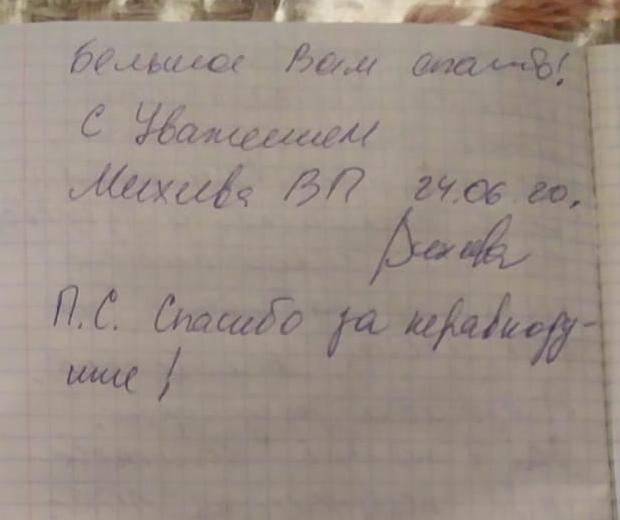 Большое Вам спасибо!
С Уважением
ВП 24.06.20.
П.С. Спасибо за неравноду-
шие!